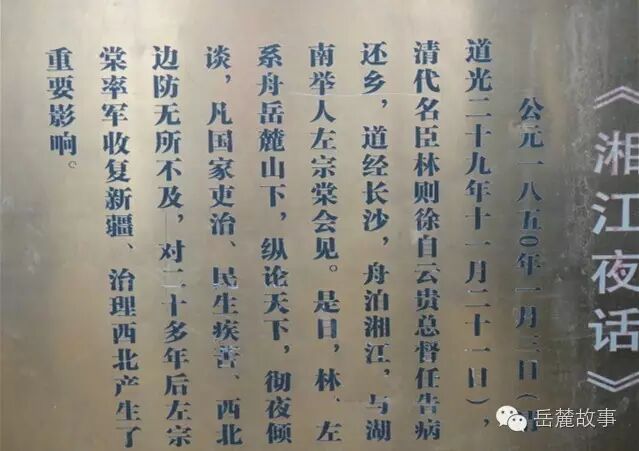 《湘江夜话》
公元一八五〇年一月三日（
道光二十九年十一月二十一日），
清代名臣林则徐自云贵总督任告病
还乡，道经长沙，舟泊湘江，与湖
南举人左宗棠会见。是日，林、左
系舟岳麓山下，纵论天下，彻夜倾
谈，凡国家吏治、民生疾苦、西北
边防无所不及，对二十多年后左宗
棠率军收复新疆、治理西北产生了
重要影响。
岳麓故事